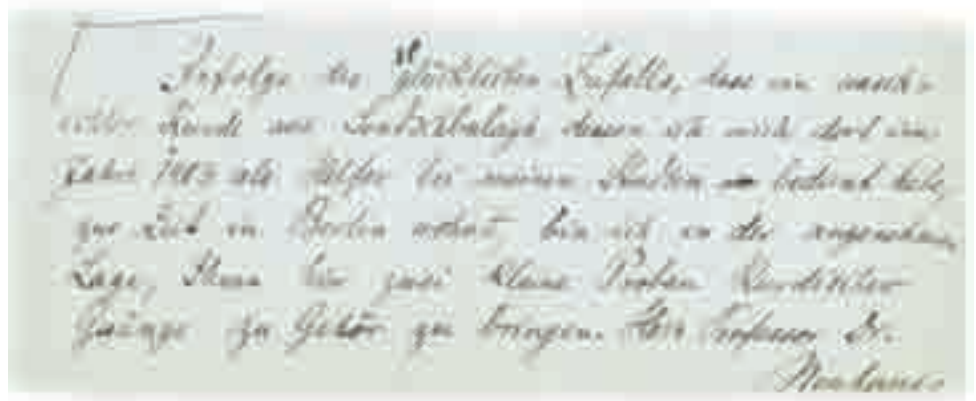 Infolge des glücklichen Zufalls, dass ein
Kurde aus Soudschbulagh dessen ich mich dort im
Jahre 1903 als Helfer bei meinen Studien bedient habe,
zur Zeit in Berlin wohnt bin ich in der angenehmen
Lage, Ihnen hier zwei kleine Proben Kurdischer
Gesänge zu Gehör zu bringen. Herr Professor Dr.